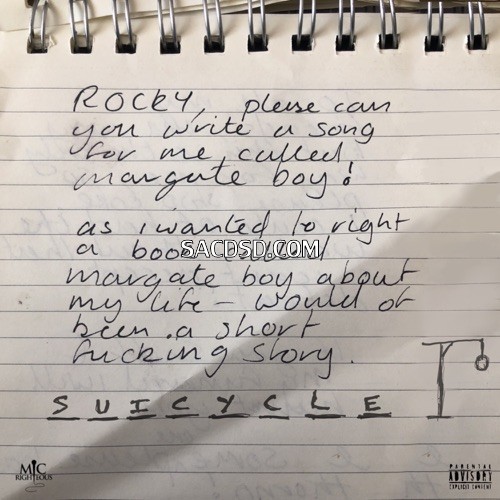 ROCKY, please can
you write a song
for me called
margate boy!
as i wanted to right
a book called
margate boy about
my life - would of
been a short
fucking story.
SUICYCLE
SACDSD.COM
MiC
RIGHTEOUS
PARENTAL
ADVISORY
EXPLICIT CONTENT